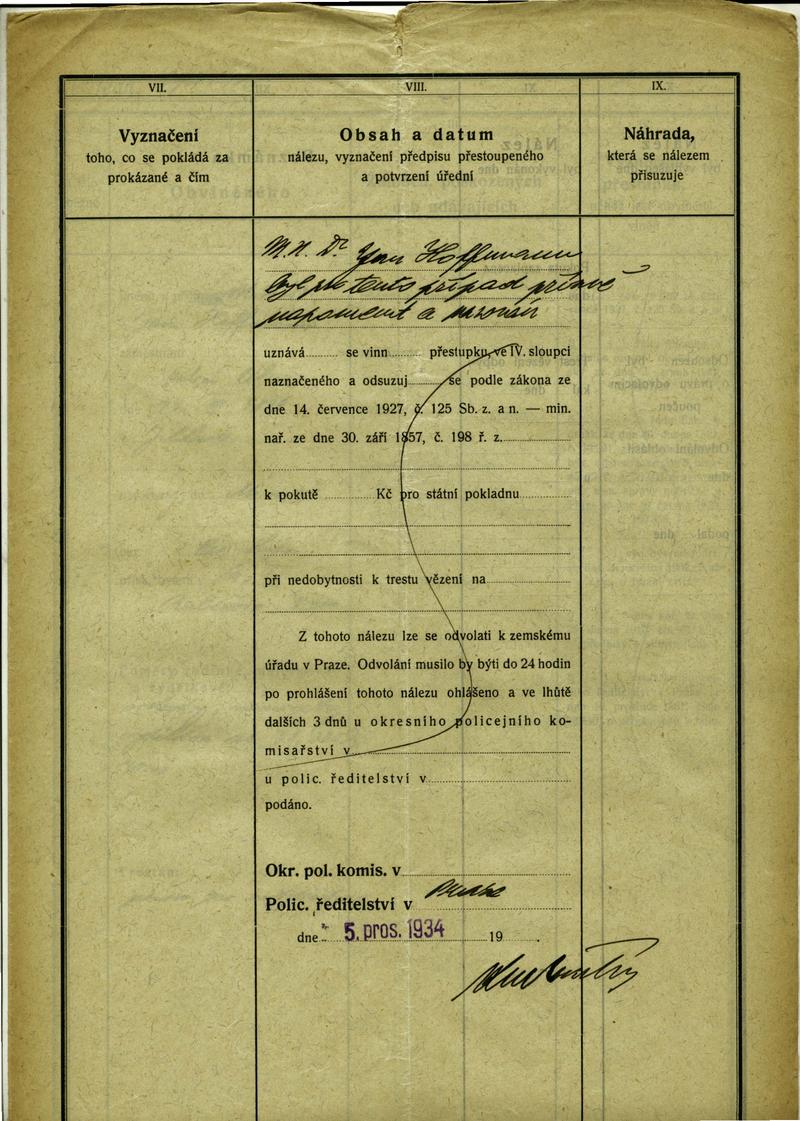 VII.
Vyznačení
toho, co se pokládá za
prokázané a čím
VIII.
Obsah a datum
nálezu, vyznačení předpisu přestoupeného
a potvrzení úřední
IX.
Náhrada,
která se nálezem
přisuzuje
Dr Jan Hoffmann
byl pro tento případ přísně
napomenut a
uznává se vinn přestupku, ve IV. sloupci
naznačeného a odsuzuj se podle zákona ze
dne 14. července 1927, č. 125 Sb. z. a n. — min.
nař. ze dne 30. září 1857, č. 198 ř. z.
k pokutě Kč pro státní pokladnu
při nedobytnosti k trestu vězení na
Z tohoto nálezu lze se odvolati k zemskému
úřadu v Praze. Odvolání musilo by býti do 24 hodin
po prohlášení tohoto nálezu ohlášeno a ve lhůtě
dalších 3 dnů u okresního policejního ko-
misařství v
u polic. ředitelství v
podáno.
Okr. pol. komis. v
Polic. ředitelství v Praze
dne 5. pros. 1934 19